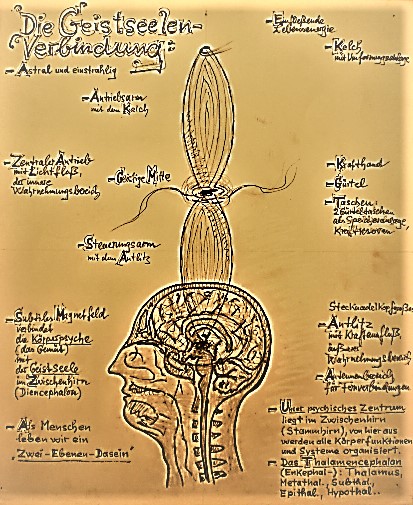 Die Geistseelen-
Verbindung:
- Astral und einstrahlig
- Antriebsarm
mit dem Kelch
- Zentraler Antrieb
mit Lichtfluß,
der innere
Wahrnehmungsbereich
- Geistige Mitte
- Steuerungsarm
mit dem Antlitz
- Subtiles Magnetfeld
verbindet
die Körperpsyche
(das Gemüt)
mit
der GeistSeele
im Zwischenhirn
(Diencephalon)
- Als Menschen
leben wir ein
"Zwei-Ebenen-Dasein"
- Einfließende
Lebensenergie
- Kelch
mit
- Krafthand
- Gürtel
- Taschen:
2 Gürteltaschen
als Speicheranlage,
Kraftreserven
Stecknadelkopfgroßes
- Antlitz
mit Kraftausfluß,
äußerer
Wahrnehmungsbereich
- Antennenbereich
für Fernverbindungen
- Unser psychisches Zentrum
liegt im Zwischenhirn
(Stammhirn), von hier aus
werden alle Körperfunktionen
und Systeme organisiert.
- Das Thalamencephalon
(EnKephal-): Thalamus,
Metathal., Subthal,
Epithal, Hypothal..